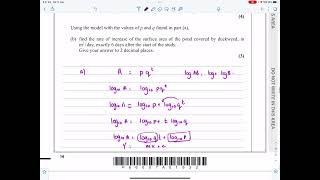 (4)
Using the model with the values of p and q found in part (a),
(b) find the rate of increase of the surface area of the pond covered by duckweed, in
m²/day, exactly 6 days after the start of the study.
Give your answer to 2 decimal places.
(3)
a) A = p q^t log AB = log A + log B
log₁₀ A = log₁₀ p q^t
log₁₀ A = log₁₀ p + log₁₀ q^t
log₁₀ A = log₁₀ p + t log₁₀ q
log₁₀ A = log₁₀ q t + log₁₀ p
Y = m x + c
14
DO NOT WRITE IN THIS AREA